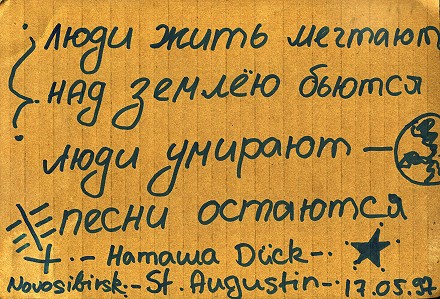 люди жить мечтают
над землёю бьются
люди умирают —
песни остаются
+ ·- Наташа Dück -·
Novosibirsk·- St. Augustin -· 17.05.97